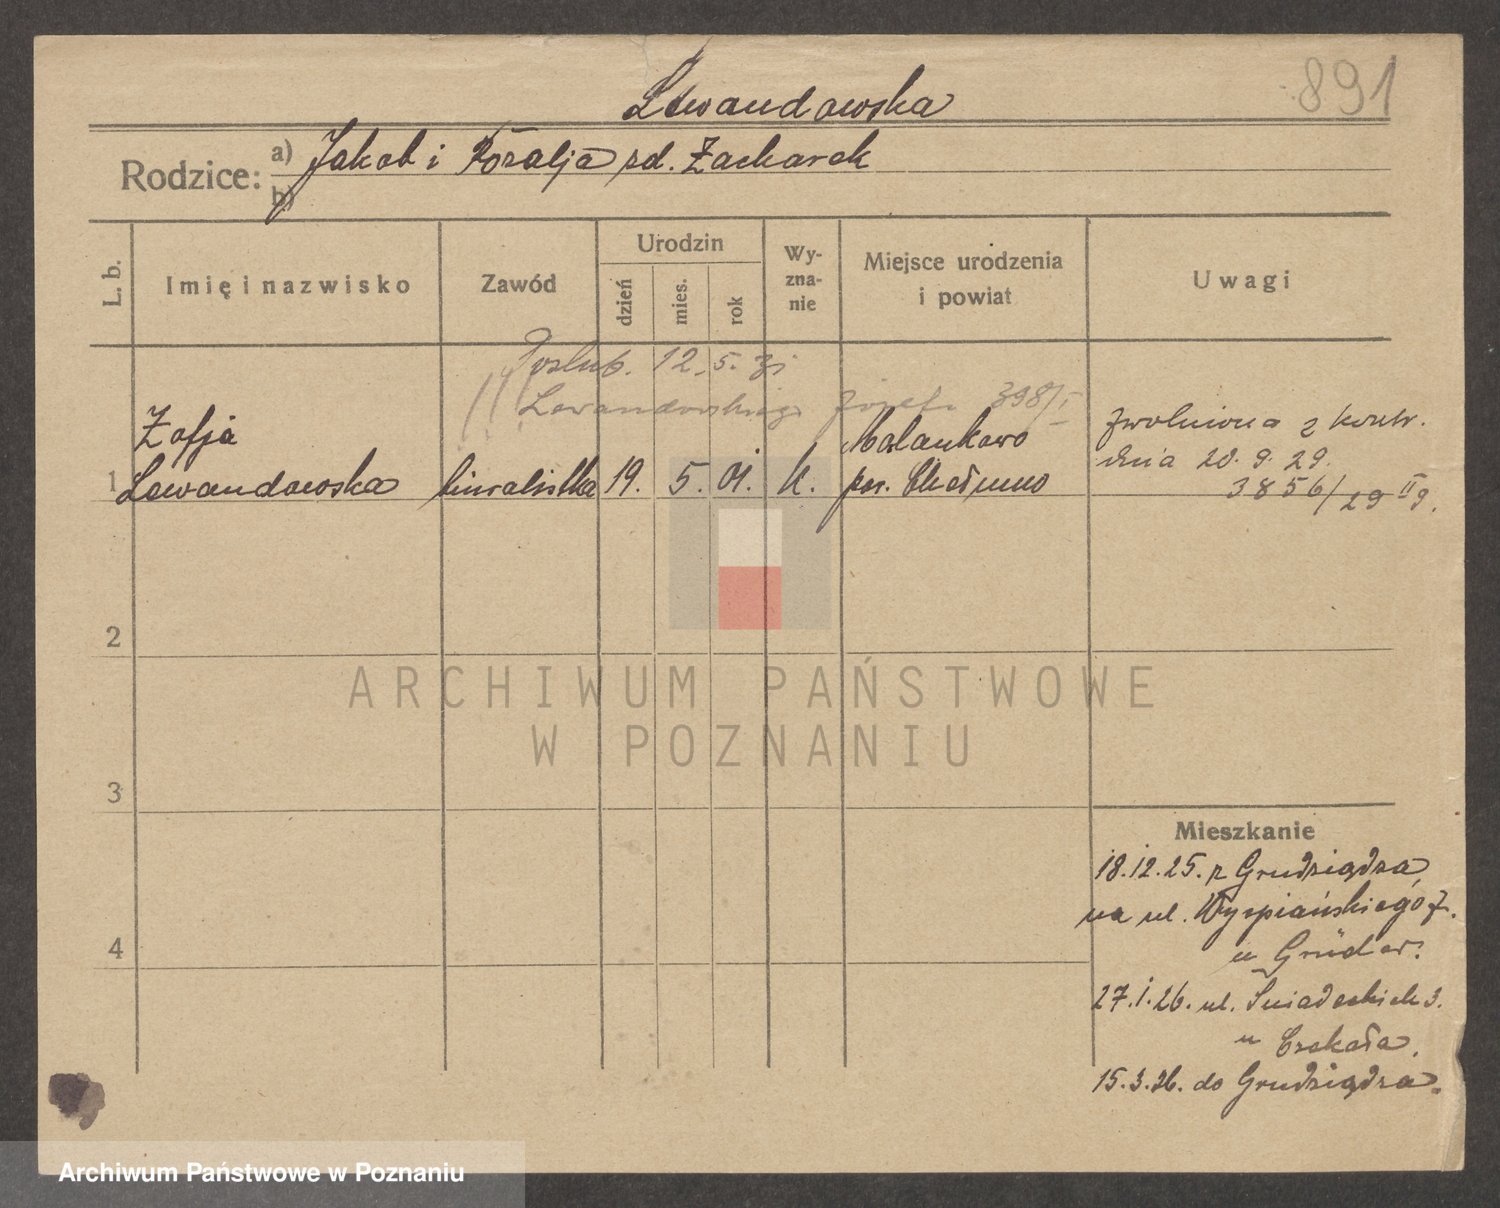 891
Lewandowska
Rodzice: a) Jakob i Rozalja zd. Zacharek
b)
L. b.
Imię i nazwisko
Zawód
Urodzin
dzień
mies.
rok
Wy-
zna-
nie
Miejsce urodzenia
i powiat
Uwagi
Poślub. 12. 5. 31
Lewandowskiego Józefa 398/I
1
Zofja
Lewandowska
19. 5. 01. k.
Malankowo
pow. Chełmno
zwolniona z kontr.
dnia 20. 9. 29.
3856/29 II 9.
2
3
4
Mieszkanie
18.12.25. z Grudziądza
na ul. Wyspiańskiego 7.
u
27.1.26. ul. Śniadeckich 3.
u
15.3.26. do Grudziądza.
ARCHIWUM PAŃSTWOWE
W POZNANIU
Archiwum Państwowe w Poznaniu